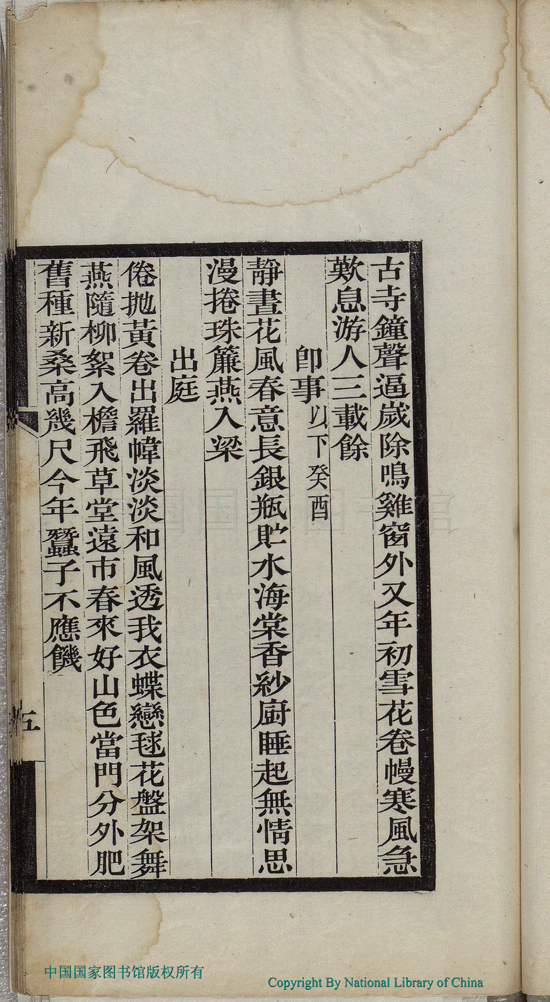 古寺鐘聲逼歲除鳴雞窗外又年初雪花卷幔寒風急
歎息游人三載餘
卽事以下癸酉
靜晝花風春意長銀瓶貯水海棠香紗厨睡起無情思
漫捲珠簾燕入梁
出庭
倦拋黃卷出羅幃淡淡和風透我衣蝶戀毬花盤架舞
燕隨柳絮入檐飛草堂遠市春來好山色當門分外肥
舊種新桑高幾尺今年蠶子不應饑
五
中国国家图书馆版权所有
Copyright By National Library of China